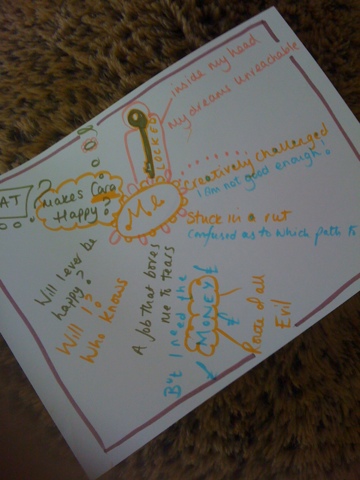 inside my head
My dreams unreachable
LOCKED
creatively challenged
I'm not good enough!
Me
Stuck in a rut
confused as to which path is
AT
makes Cara
Happy?
?
Will I ever be
happy?
Will I?
Who knows
A job that bores
me to tears
But I need the
£ MONEY £
£ £
Roote of all
Evil